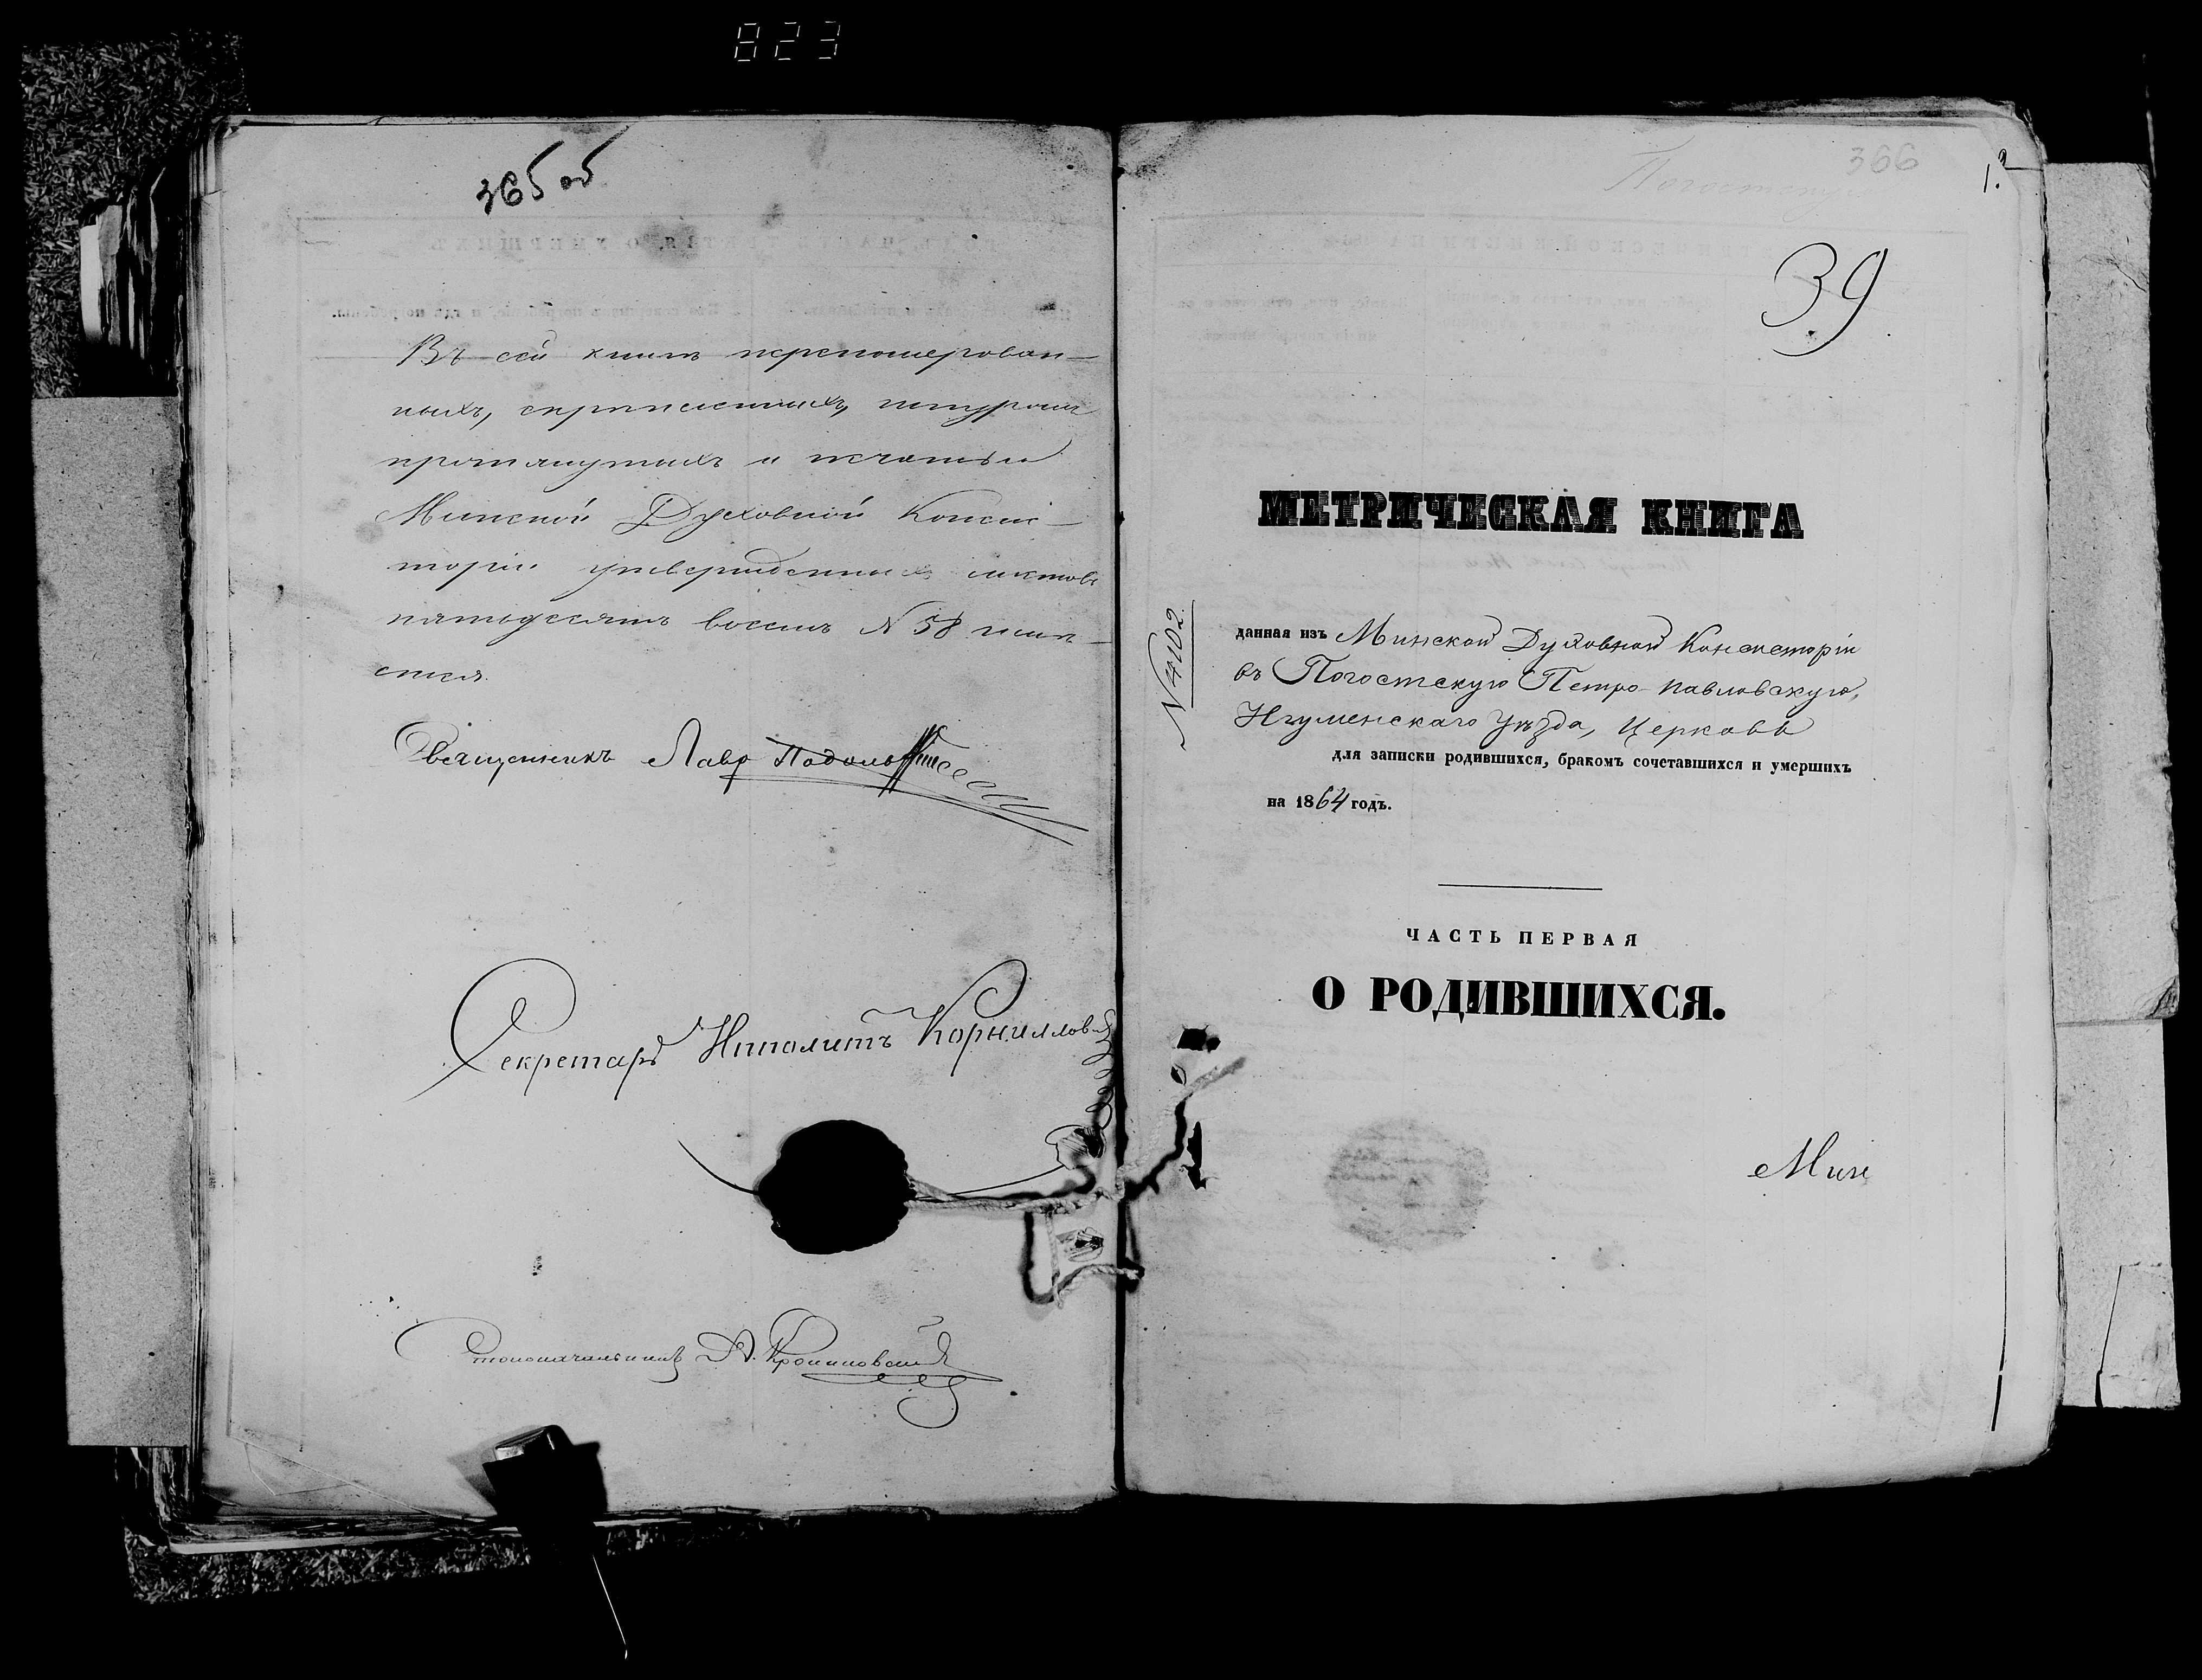 823
365 об
Въ сей книгѣ перенумерован-
ныхъ, скрѣпленныхъ, шнуромъ
протянутыхъ и печатью
Минской Духовной Консис-
торіи утвержденныхъ листовъ
пятьдесятъ восемь N 58 имѣ-
ется.
Священникъ Лавр
Секретарь Ипполитъ Корниллов
Столоначальникъ
366
1.
Погостскую
39
МЕТРИЧЕСКАЯ КНИГА
N 4102.
данная изъ Минской Духовной Консисторіи
въ Погостскую Петро-Павловскую,
Игуменскаго Уѣзда, Церковь
для записки родившихся, бракомъ сочетавшихся и умершихъ
на 1864 годъ.
ЧАСТЬ ПЕРВАЯ
О РОДИВШИХСЯ.
Мин